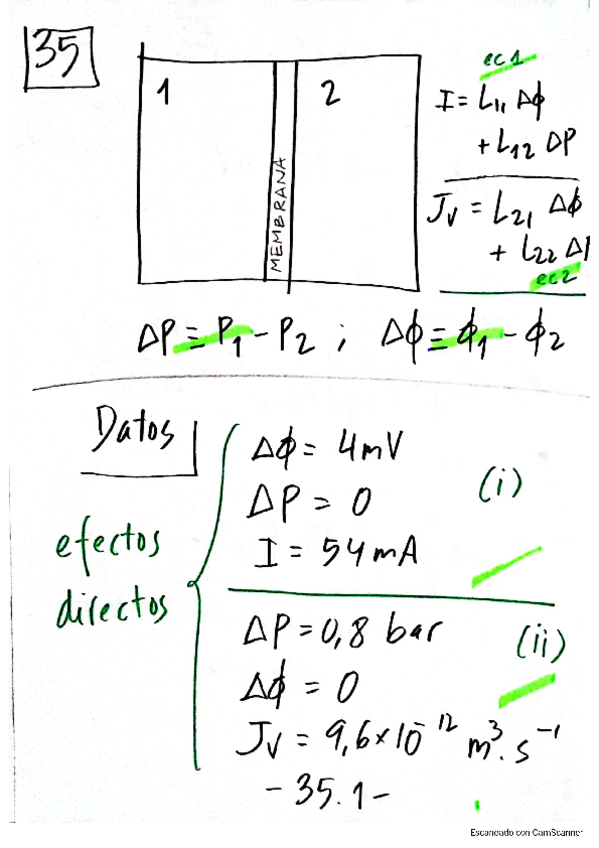 35
1
2
MEMBRANA
ec1
I = L₁₁ Δϕ
+ L₁₂ ΔP
Jᵥ = L₂₁ Δϕ
+ L₂₂ ΔP
ec2
ΔP ≡ P₁ - P₂ ; Δϕ ≡ ϕ₁ - ϕ₂
Datos
efectos
directos
Δϕ = 4mV
ΔP = 0
(i)
I = 54 mA
ΔP = 0,8 bar
(ii)
Δϕ = 0
Jᵥ = 9,6×10⁻¹² m³·s⁻¹
- 35.1 -
Escaneado con CamScanner